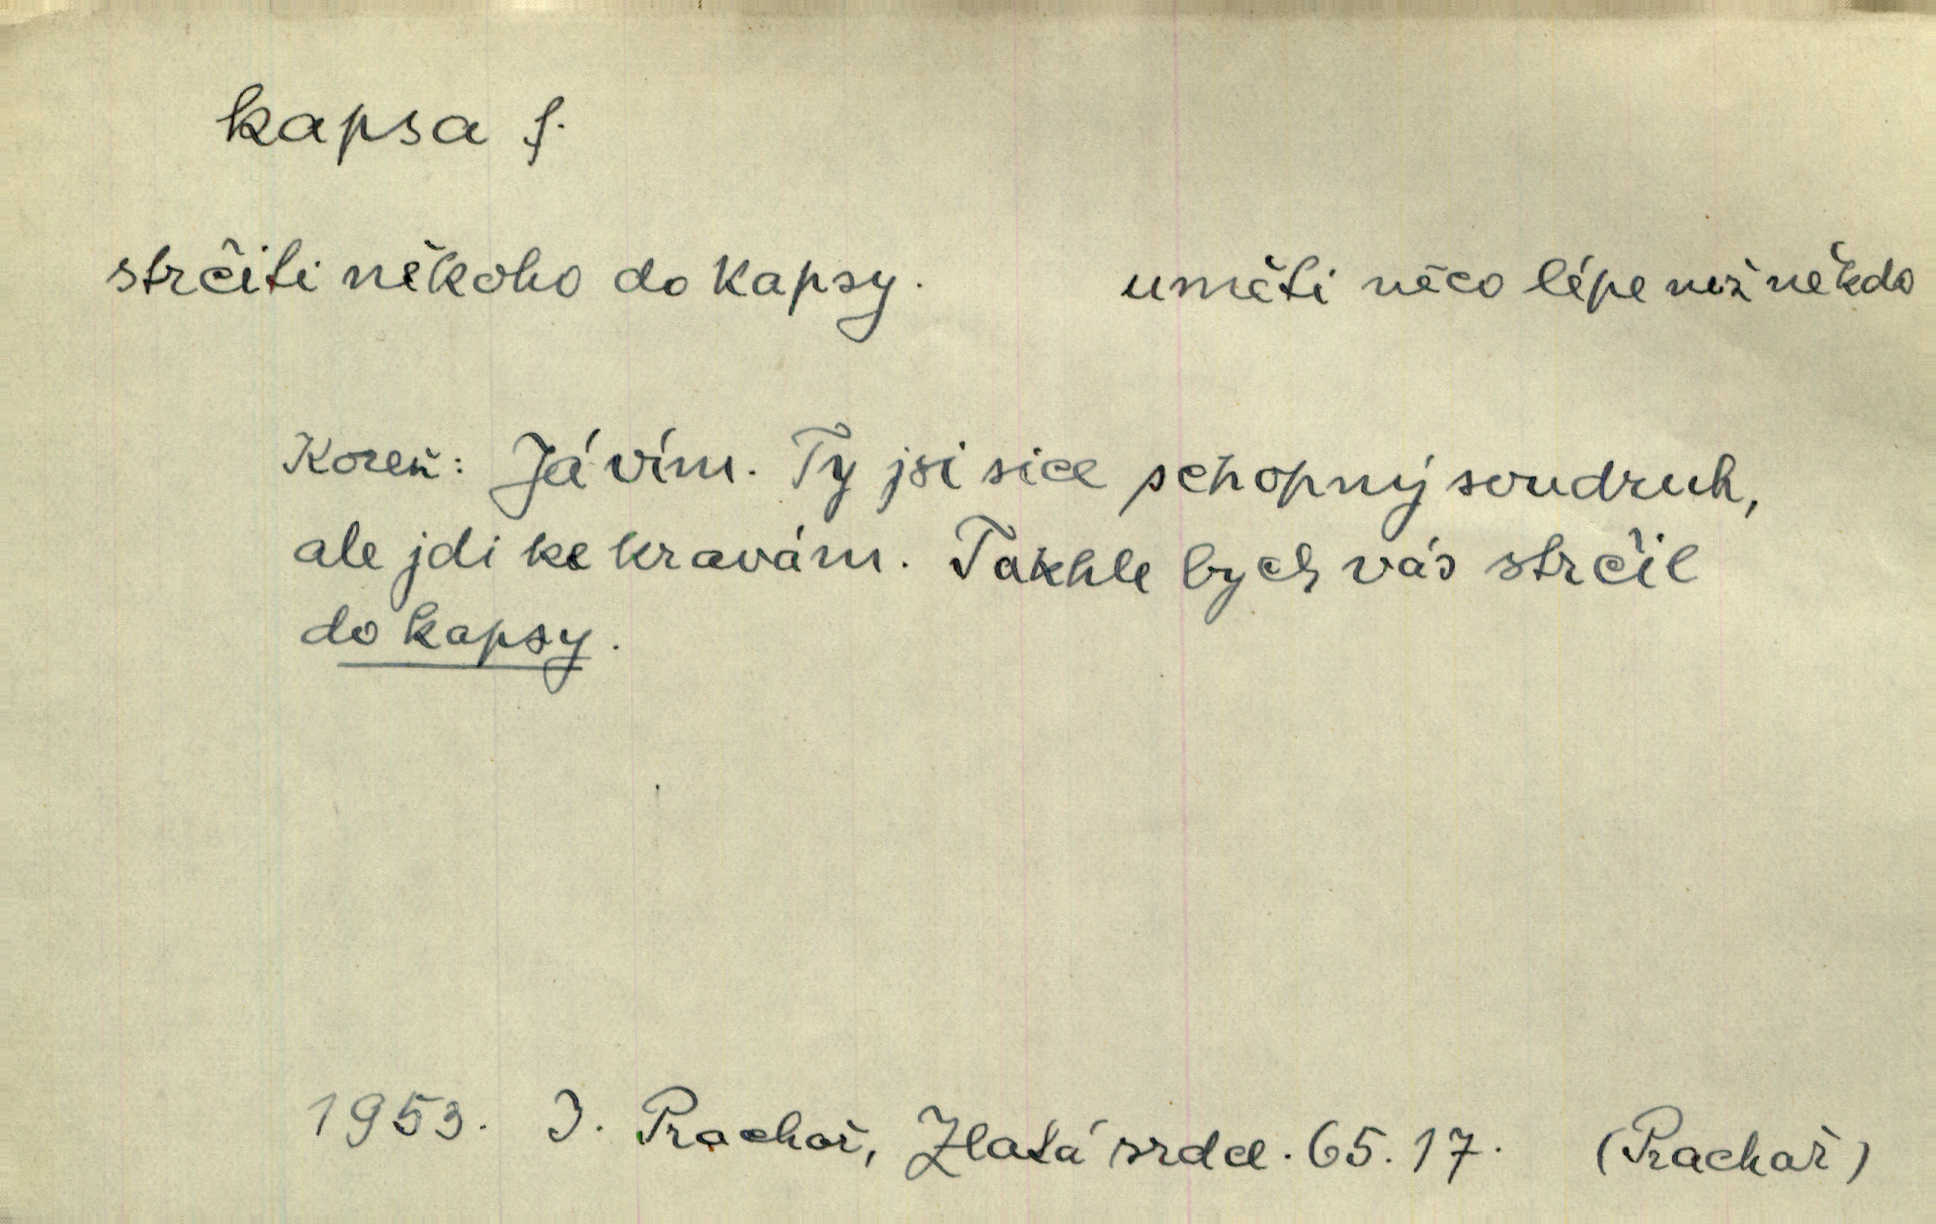 kapsa f.
strčiti někoho do kapsy. uměti něco lépe než někdo
Koreň: Já vím. Ty jsi sice schopný soudruh,
ale jdi ke kravám. Takhle bych vás strčil
do kapsy.
1953. I. Prachař, Zlatá srdce. 65. 17. (Prachař)